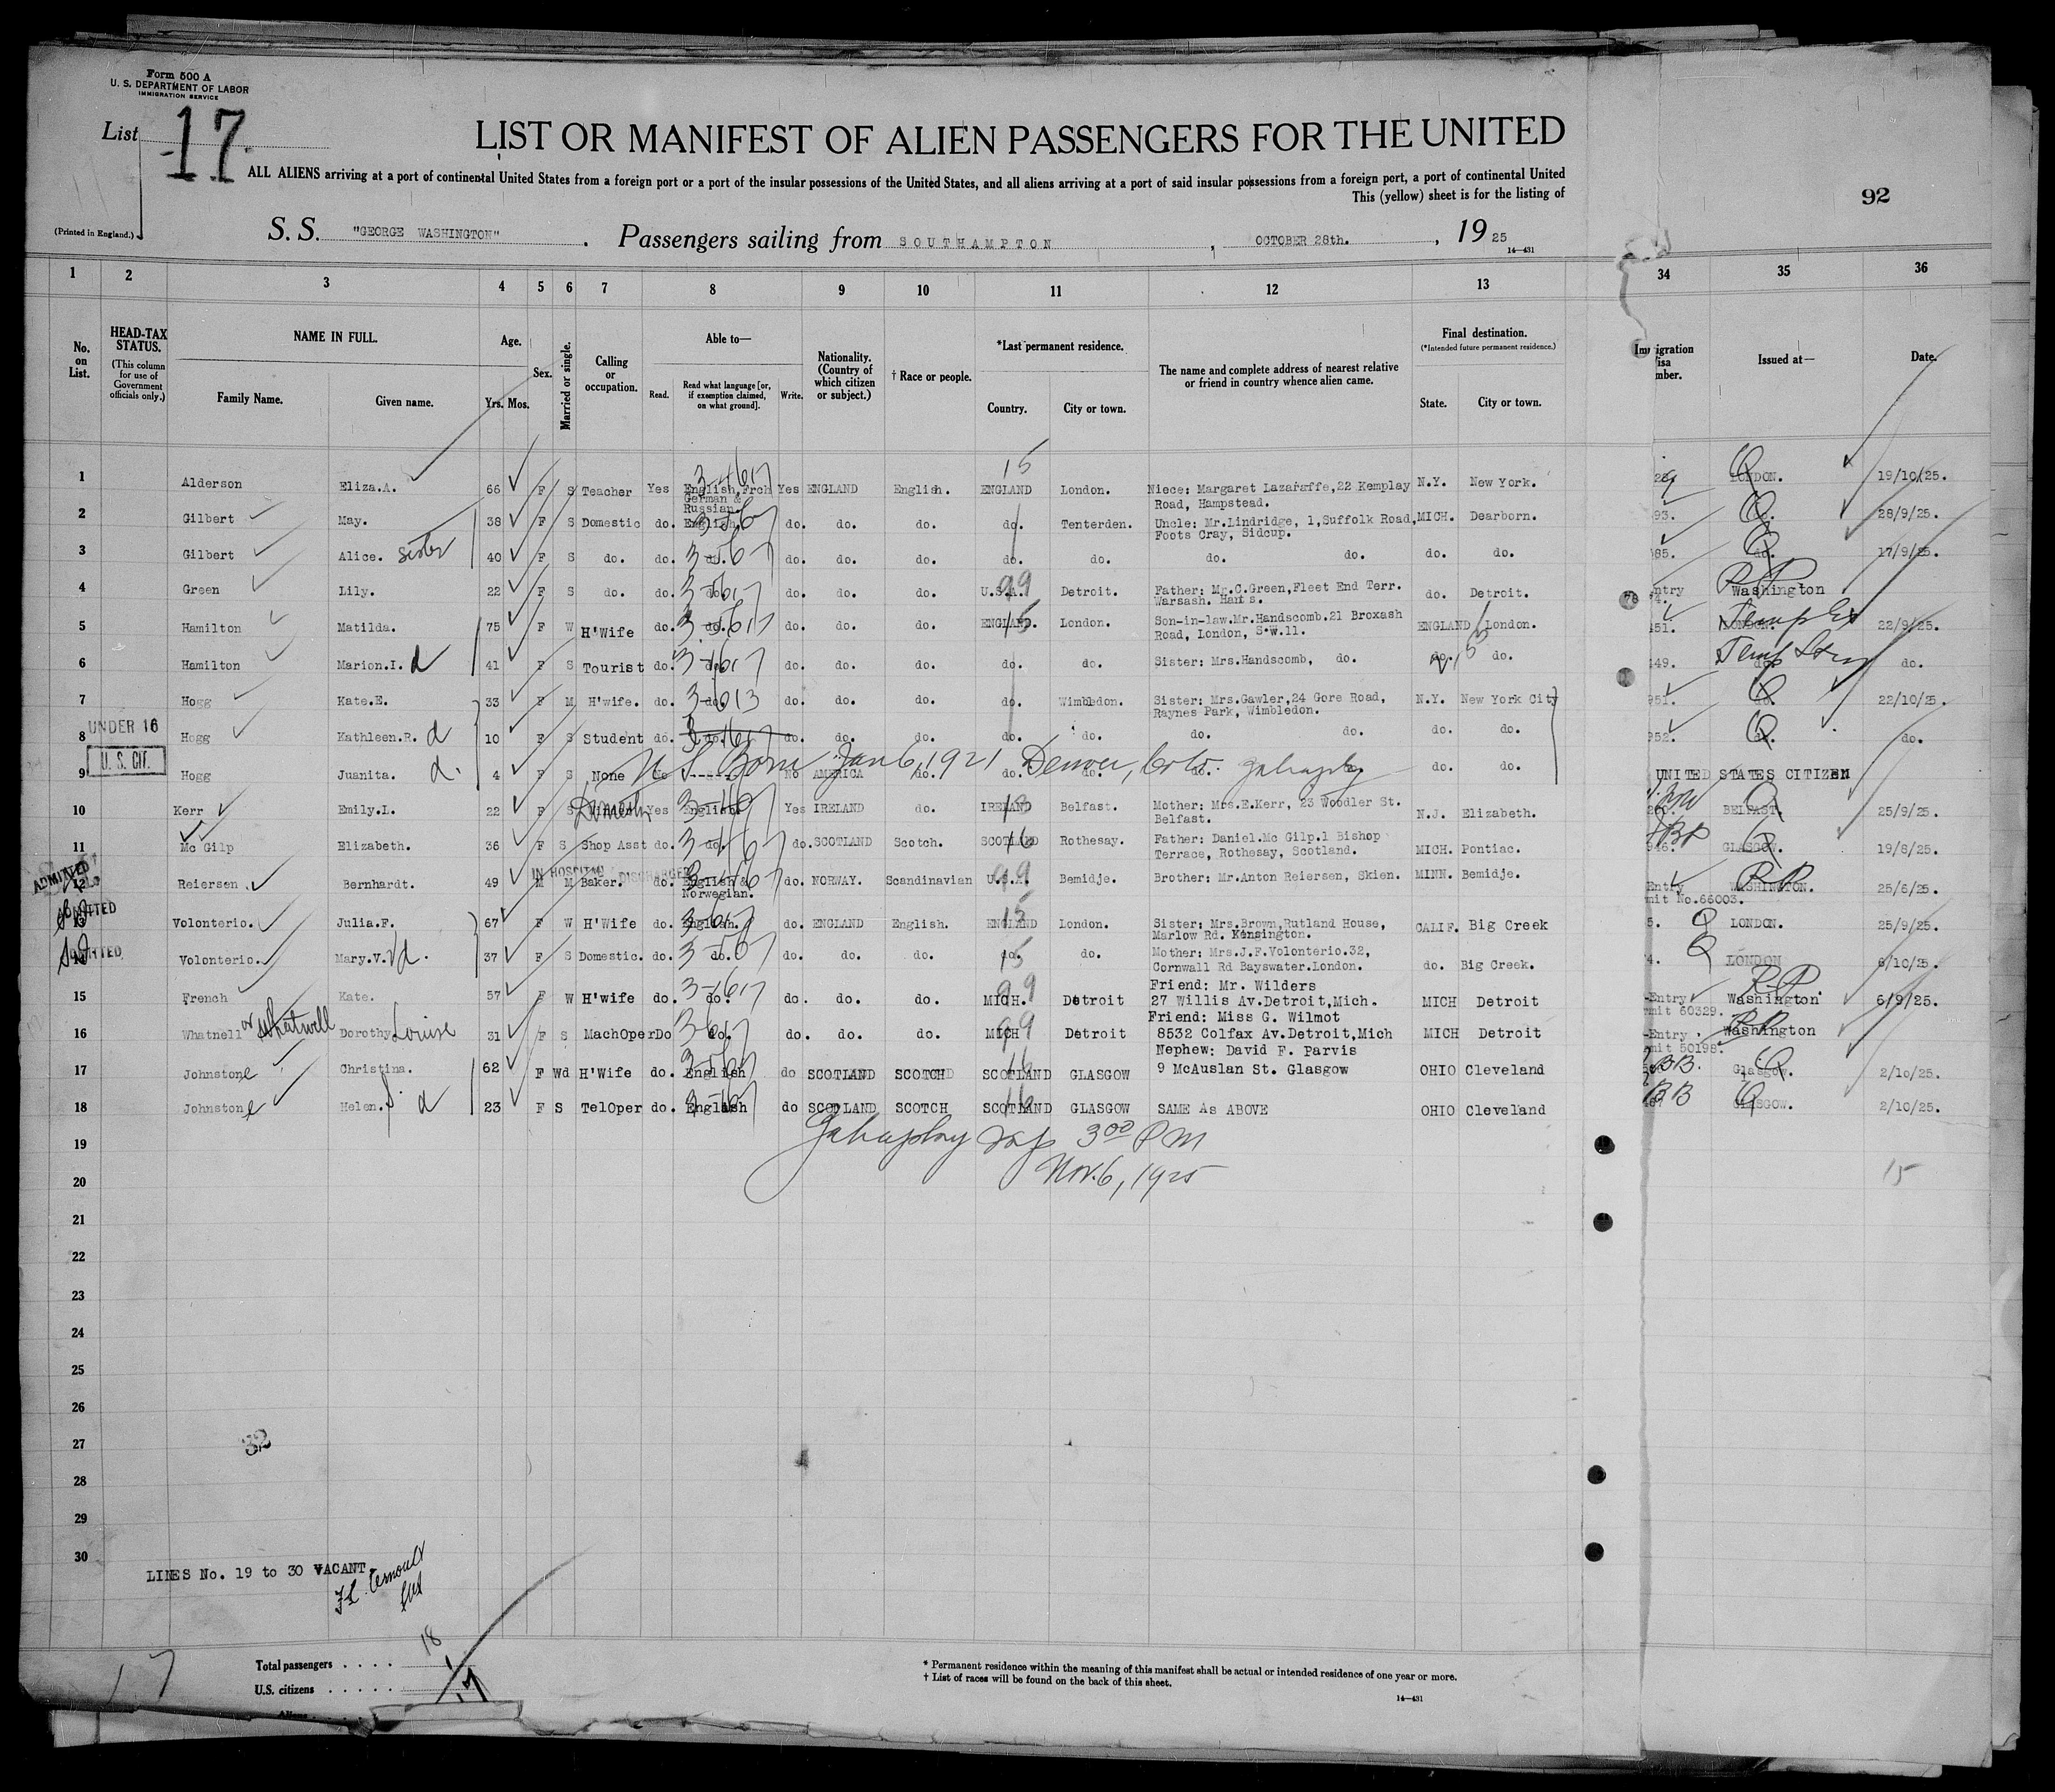 Form 500 A
U. S. DEPARTMENT OF LABOR
IMMIGRATION SERVICE
List 17
LIST OR MANIFEST OF ALIEN PASSENGERS FOR THE UNITED
ALL ALIENS arriving at a port of continental United States from a foreign port or a port of the insular possessions of the United States, and all aliens arriving at a port of said insular possessions from a foreign port, a port of continental United
This (yellow) sheet is for the listing of
92
(Printed in England.)
S. S. "GEORGE WASHINGTON" . Passengers sailing from SOUTHAMPTON , OCTOBER 28th. , 19 25
14—431
1 2 3 4 5 6 7 8 9 10 11 12 13 34 35 36
No. on List.
HEAD-TAX STATUS.
(This column for use of Government officials only.)
NAME IN FULL.
Family Name. Given name.
Age.
Yrs. Mos.
Sex.
Married or single.
Calling or occupation.
Able to—
Read. Read what language [or, if exemption claimed, on what ground]. Write.
Nationality. (Country of which citizen or subject.)
† Race or people.
*Last permanent residence.
Country. City or town.
The name and complete address of nearest relative or friend in country whence alien came.
Final destination.
(*Intended future permanent residence.)
State. City or town.
Issued at— Date.
1 Alderson Eliza.A. 66 F S Teacher Yes English,Frch German & Russian. Yes ENGLAND English. ENGLAND London. Niece: Margaret 22 Kemplay Road, Hampstead. N.Y. New York. LONDON. 19/10/25.
2 Gilbert May. 38 F S Domestic do. English do. do. do. do. Tenterden. Uncle: Mr.Lindridge, 1,Suffolk Road, Foots Cray, Sidcup. MICH. Dearborn. 93. 28/9/25.
3 Gilbert Alice. sister 40 F S do. do. do. do. do. do. do. do. do. do. do. do. 85. do. 17/9/25.
4 Green Lily. 22 F S do. do. do. do. do. do. U.S.A. Detroit. Father: Mr.C.Green,Fleet End Terr. Warsash. Hants. do. Detroit. Entry Washington
5 Hamilton Matilda. 75 F W H'Wife do. do. do. do. do. ENGLAND. London. Son-in-law.Mr.Handscomb.21 Broxash Road, London, S.W.11. ENGLAND London. 51. LONDON. 22/9/25.
6 Hamilton Marion.I. d 41 F S Tourist do. do. do. do. do. do. do. Sister: Mrs.Handscomb, do. do. do. 49. do. do.
7 Hogg Kate.E. 33 F M H'wife. do. do. do. do. do. do. Wimbledon. Sister: Mrs.Gawler,24 Gore Road, Raynes Park, Wimbledon. N.Y. New York City 951. do. 22/10/25.
UNDER 16
8 Hogg Kathleen.R. d 10 F S Student do. do. do. do. do. do. do. do. do. do. do. 952. do. do.
U. S. CIT.
9 Hogg Juanita. d. 4 F S None No ----- No AMERICA do. do. do. do. do. do. do. UNITED STATES CITIZEN
U S Born Jan 6, 1921 Denver, Colo.
10 Kerr Emily.I. 22 F S Domestic Yes English Yes IRELAND do. IRELAND Belfast. Mother: Mrs.E.Kerr, 23 Woodler St. Belfast. N.J. Elizabeth. BELFAST. 25/9/25.
11 Mc Gilp Elizabeth. 36 F S Shop Asst do. do. do. SCOTLAND Scotch. SCOTLAND Rothesay. Father: Daniel.Mc Gilp.1 Bishop Terrace, Rothesay, Scotland. MICH. Pontiac. 946. GLASGOW. 19/8/25.
ADMITTED
IN HOSPITAL DISCHARGED
12 Reiersen. Bernhardt. 49 M M Baker. do. English & Norwegian. do. NORWAY. Scandinavian U.S.A. Bemidje. Brother: Mr.Anton Reiersen, Skien. MINN. Bemidje. Entry mit No.66003. WASHINGTON. 25/6/25.
ADMITTED
13 Volonterio. Julia.F. 67 F W H'Wife do. English. do. ENGLAND English. ENGLAND London. Sister: Mrs.Brown,Rutland House, Marlow Rd. Kensington. CALIF. Big Creek LONDON. 25/9/25.
ADMITTED
14 Volonterio. Mary.V. d. 37 F S Domestic. do. do. do. do. do. do. do. Mother: Mrs.J.F.Volonterio.32, Cornwall Rd Bayswater.London. do. Big Creek. LONDON 6/10/25.
15 French Kate. 57 F W H'wife do. do. do. do. do. MICH. Detroit Friend: Mr. Wilders 27 Willis Av.Detroit,Mich. MICH Detroit -Entry mit 60329. Washington 6/9/25.
16 Whatnell or Whatwell Dorothy Louise 31 F S MachOper Do do. do. do. do. MICH Detroit Friend: Miss G. Wilmot 8532 Colfax Av.Detroit,Mich MICH Detroit -Entry mit 50198. Washington
17 Johnstone Christina. 62 F Wd H'Wife do. English do SCOTLAND SCOTCH SCOTLAND GLASGOW Nephew: David F. Parvis 9 McAuslan St. Glasgow OHIO Cleveland Glasgow. 2/10/25.
18 Johnstone Helen. S. d 23 F S TelOper do. English do SCOTLAND SCOTCH SCOTLAND GLASGOW SAME As ABOVE OHIO Cleveland GLASGOW. 2/10/25.
19
3 00 P M
20
Nov. 6, 1925
15
21
22
23
24
25
26
27
32
28
29
30
LINES No. 19 to 30 VACANT.
Total passengers . . . . 18
U.S. citizens . . . . . 1
17
17
* Permanent residence within the meaning of this manifest shall be actual or intended residence of one year or more.
† List of races will be found on the back of this sheet.
14—431